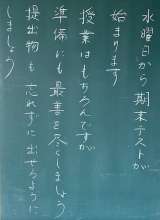 水曜日から期末テストが
始まります
授業はもちろんですが
準備にも最善を尽くしましょう
提出物も忘れずに出せるように
しましょう